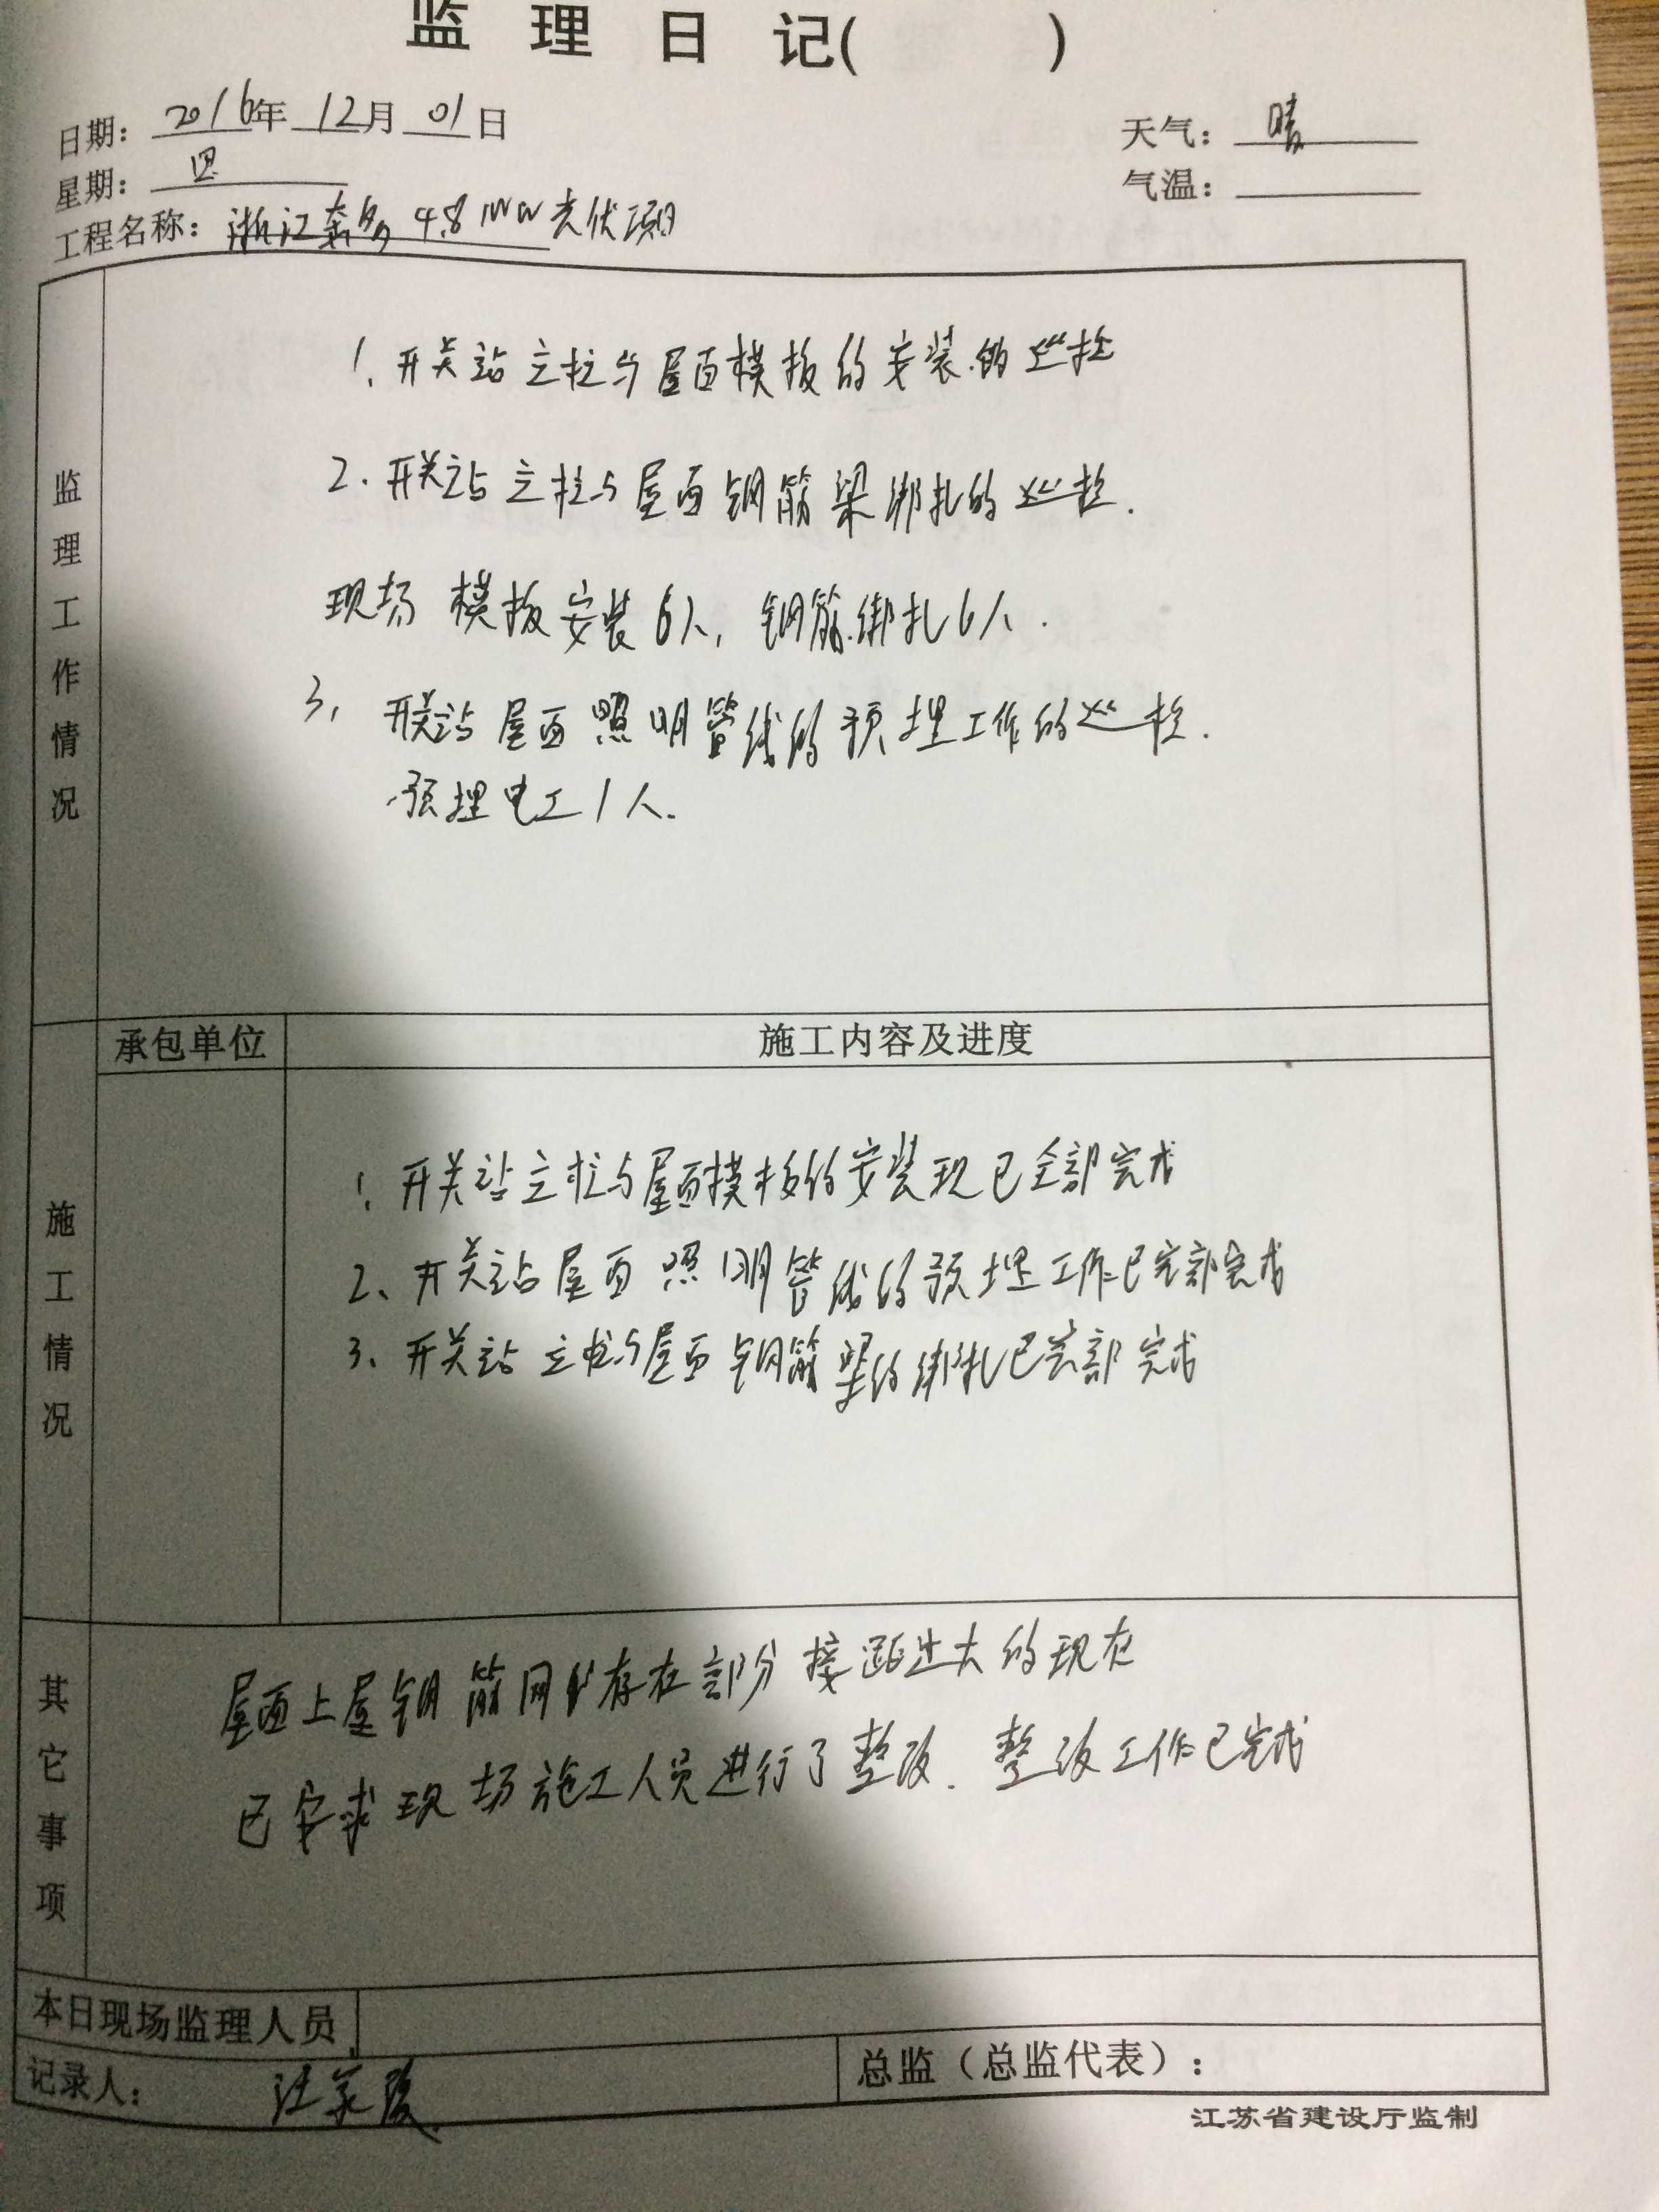 监理日记(          )
日期：2016年12月01日
天气：晴
星期：四
气温：
工程名称：浙江奔多4.8MW光伏项目
监理工作情况
1、开关站立柱与屋面模板的安装的巡检
2、开关站立柱与屋面钢筋梁绑扎的巡检.
现场模板安装6人，钢筋绑扎6人.
3、开关站屋面照明管线的预埋工作的巡检.
预埋电工1人.
承包单位
施工内容及进度
施工情况
1、开关站立柱与屋面模板的安装现已全部完成
2、开关站屋面照明管线的预埋工作已全部完成
3、开关站立柱与屋面钢筋梁的绑扎已全部完成
其它事项
屋面上层钢筋网存在部分接距过大的现在
已要求现场施工人员进行了整改.整改工作已完成
本日现场监理人员
记录人：汪
总监（总监代表）：
江苏省建设厅监制